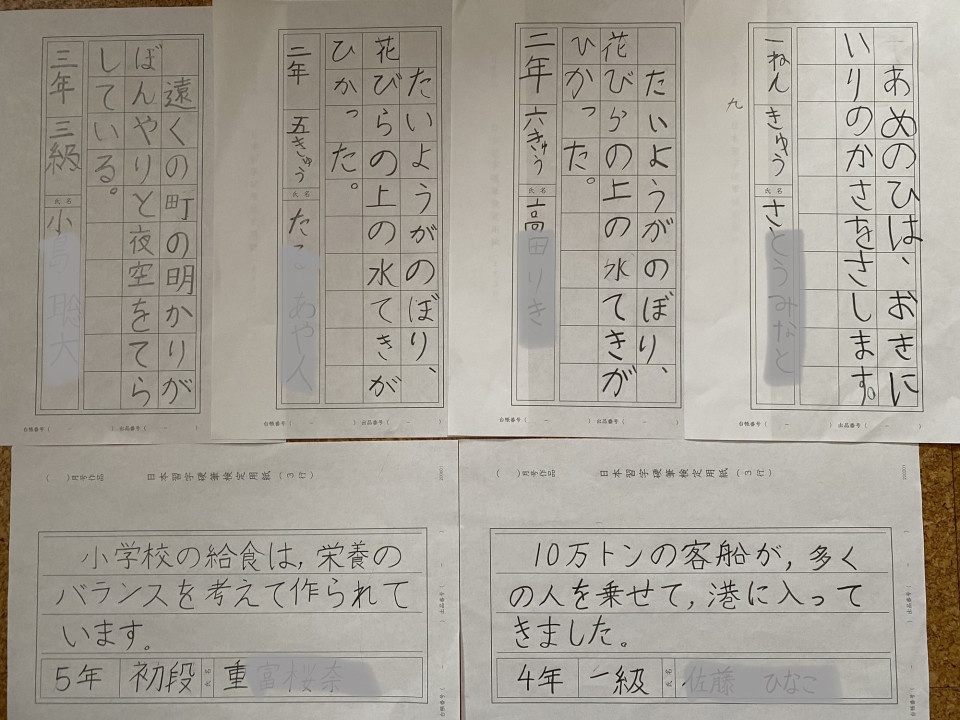 あめのひは、おきに
いりのかさをさします。
一ねん きゅう 氏名 さ
台帳番号( - ) 出品番号( - )
たいようがのぼり、
花びらの上の水てきが
ひかった。
二年 六きゅう 氏名 高
台帳番号( - ) 出品番号( - )
たいようがのぼり、
花びらの上の水てきが
ひかった。
二年 五きゅう 氏名 た
台帳番号( - ) 出品番号( - )
遠くの町の明かりが
ぼんやりと夜空をてら
している。
三年 三級 氏名 小
台帳番号( - ) 出品番号( - )
( )月号作品 日本習字硬筆検定用紙(3行)
小学校の給食は,栄養の
バランスを考えて作られて
います。
5年 初段 氏名 重
( )月号作品 日本習字硬筆検定用紙(3行)
10万トンの客船が,多く
の人を乗せて,港に入って
きました。
4年 一級 氏名
台帳番号( - ) 出品番号( - )